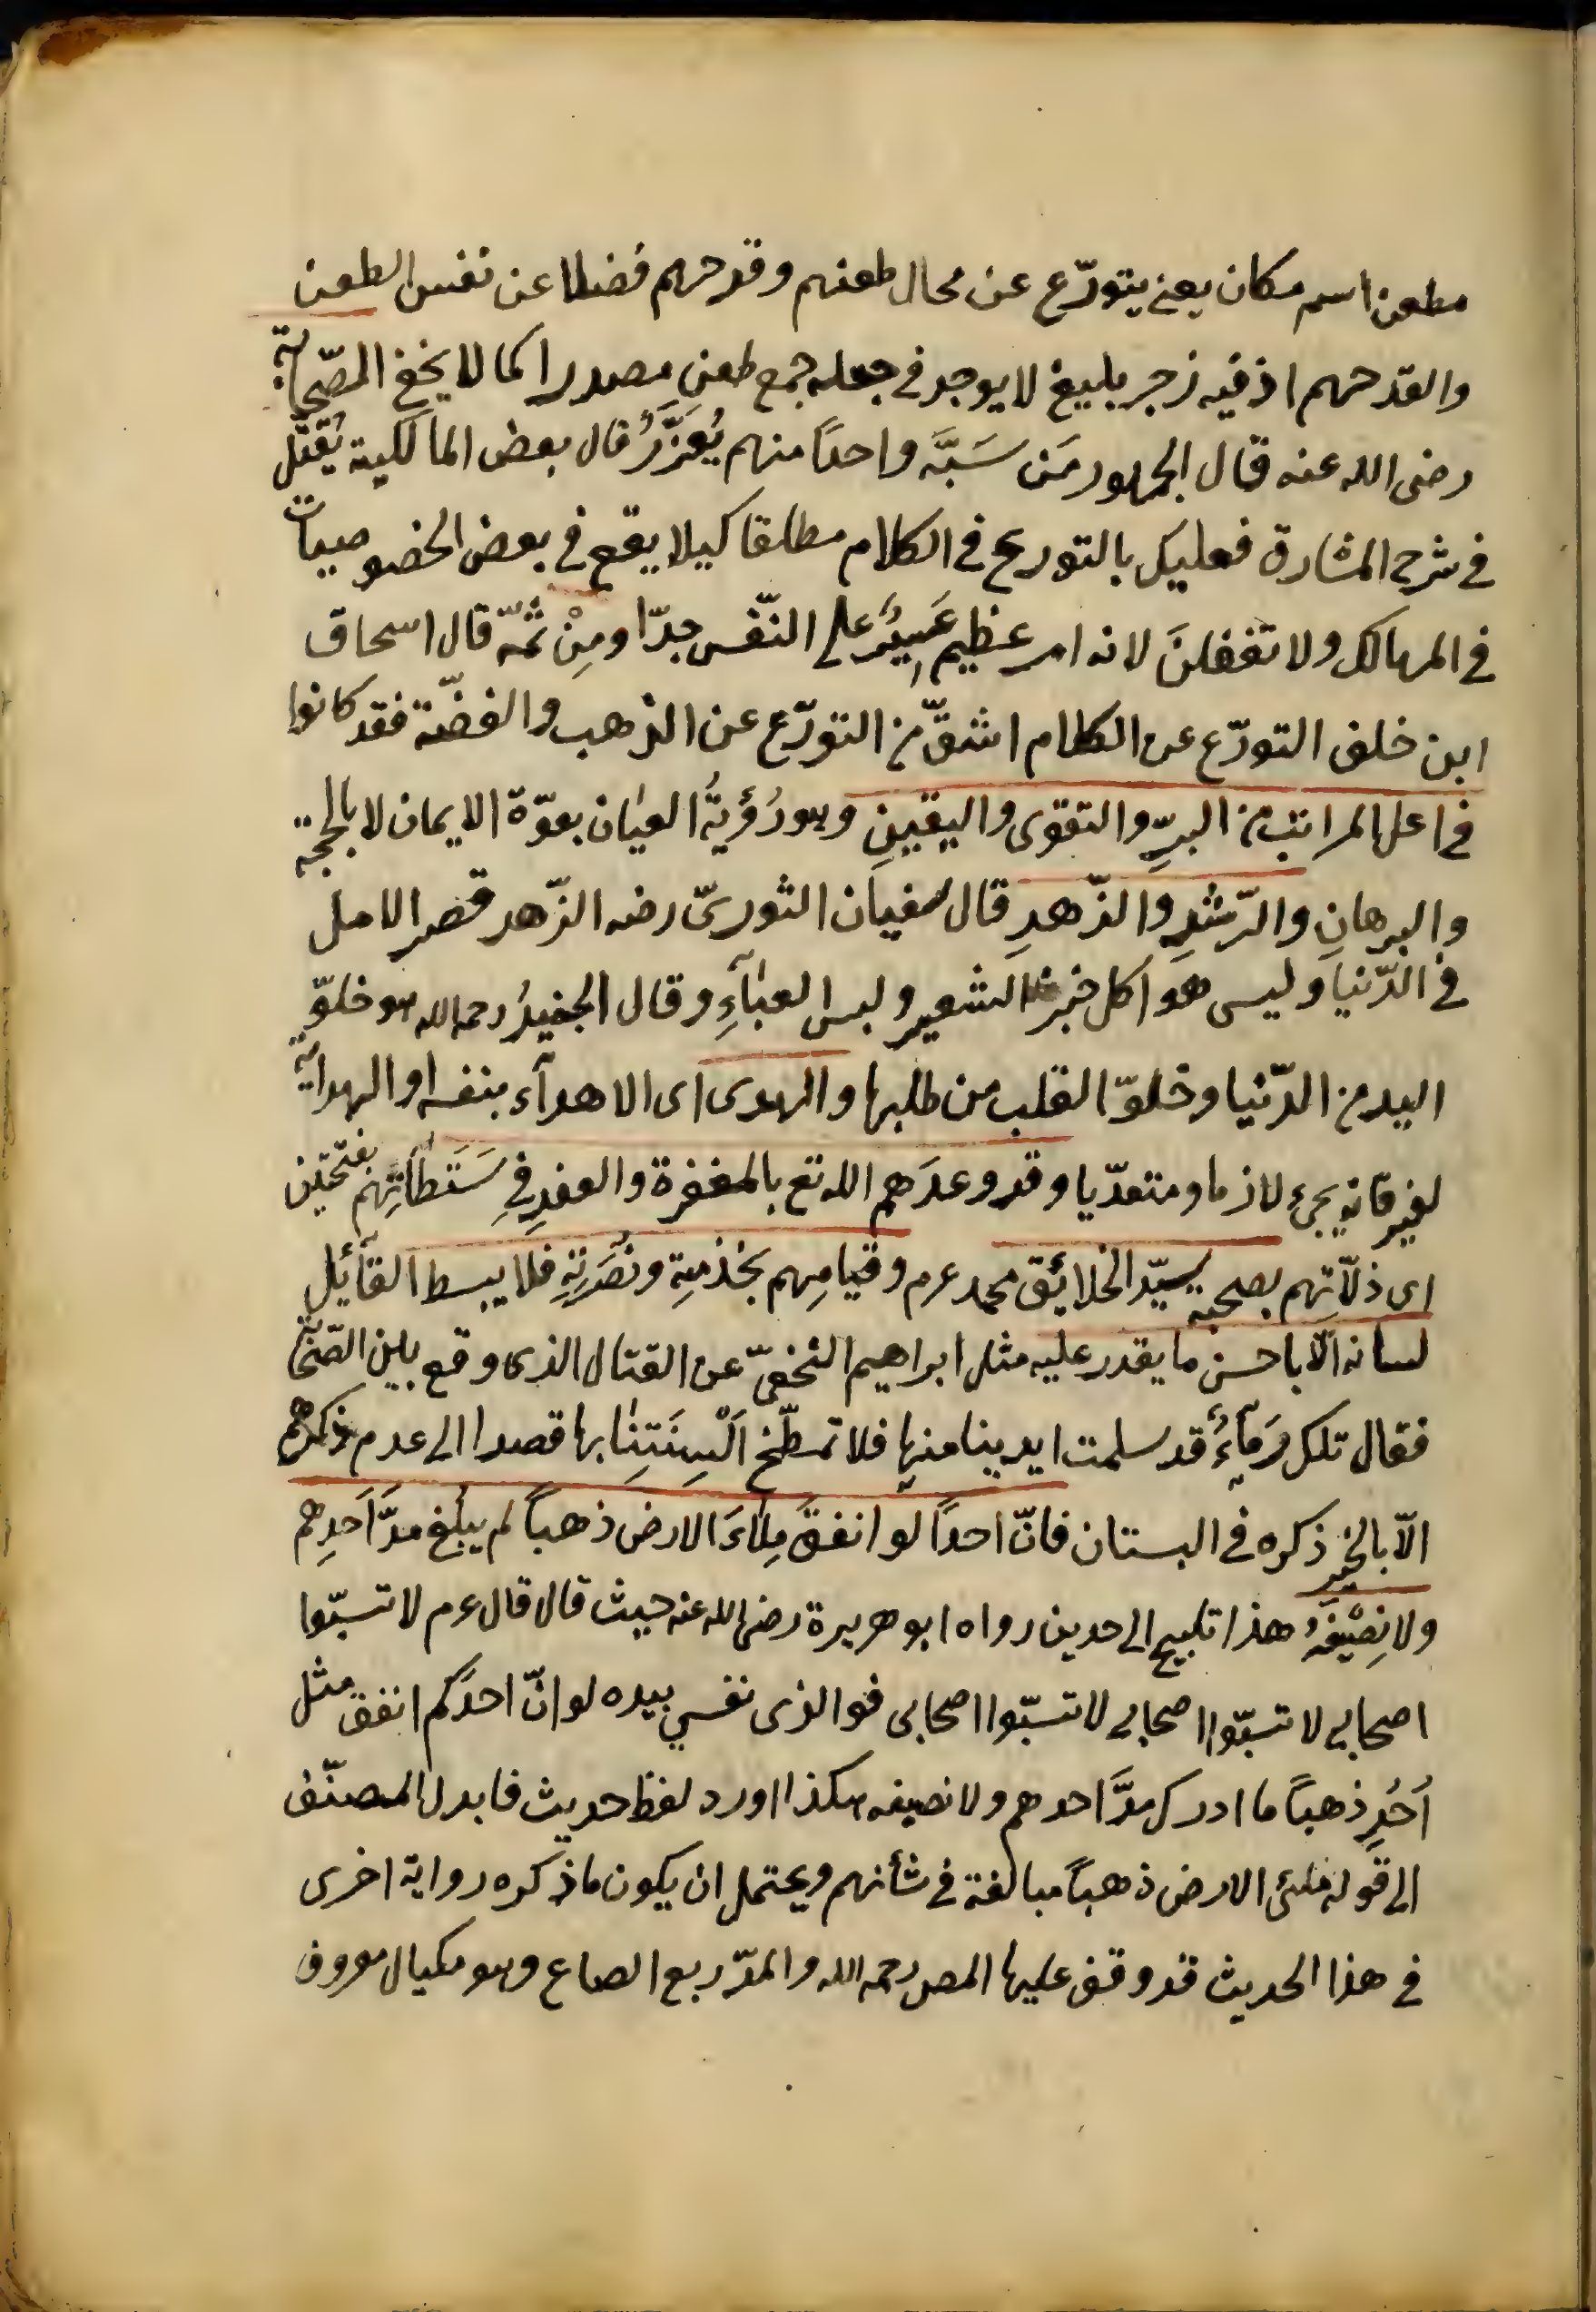 مطعن اسم مكان يعنى يتورّع عن محال طعنهم وقدحهم فضلا عن نفس الطعن
والقدحهم اذ فيه زجر بليغ لا يوجد فى جعله جمع طعن مصدرا كما لا يخفى الصّحابة
رضى الله عنه قال الجمهور مَن سَبَّه واحدًا منهم يُعَزَّرُ قال بعض المالكية يُقتَل
فى شرح المشارق فعليك بالتورع فى الكلام مطلقا كيلا يقع فى بعض الخصوصيات
فى المهالك ولا تغفلنَ لانه امر عظيم عَسِيرٌ على النّفس جدّا ومِنْ ثمّه قال اسحاق
ابن خلف التورّع عن الكلام اشقّ من التورّع عن الذهب والفضّة فقد كانوا
فى اعلى المراتب من البرِّ والتقوى واليقينِ وهو رُؤيةُ العيان بقوّة الايمان لا بالحجة
والبرهانِ والرّشدِ والزّهدِ قال سفيان الثورىّ رضه الزّهد قصر الامل
فى الدّنيا وليس هو اكل خبز الشعير ولبس العبآءِ وقال الجنيدُ رحمه الله هو خلوّ
اليد من الدّنيا وخلوّ القلب من طلبها والهدى اى الاهدآء بنفسه او الهداية
لغير فانه يجىء لازما ومتعدّيا وقد وعدَهم الله تع بالمغفرة والعفوِ فى سَتَطاتِهم بفتحتين
اى ذلّاتِهم بصحبة سيّد الخلائق محمد عرم وقيامِهم بخدمتِه ونُصْرَتِهِ فلا يبسط القآئل
لسانه الّا باحسن ما يقدر عليه مثل ابراهيم النخعىّ عن القتال الذى وقع بين الصّحابة
فقال تلك دِمآءٌ قد سلمت ايدينا منها فلا تطّخ اَلْسِنَتِنا بها قصدا الى عدم ذكرهم
الّا بالخيرِ ذكره فى البستان فانّ احدًا لو انفقَ مِلاءَ الارض ذهباً لم يبلغ مدَّ اَحَدِهم
ولا نِصْيفَهُ هذا تلميح الى حديث رواه ابو هريرة رضى الله عنه حيث قال قال عرم لا تسبّوا
اصحابى لا تسبّوا اصحابى لا تسبّوا اصحابى فوالذى نفسى بيده لو انّ احدَكم انفق مثل
اُحُدٍ ذهباً ما ادرك مدَّ احدهم ولا نصيفه هكذا اورد لفظ حديث فابدل المصنّف
الى قوله ملئ الارض ذهباً مبالغة فى شأنهم ويحتمل ان يكون ما ذكره رواية اخرى
فى هذا الحديث قد وقف عليها المص رحمه الله والمدّ ربع الصاع وهو مكيال معروف